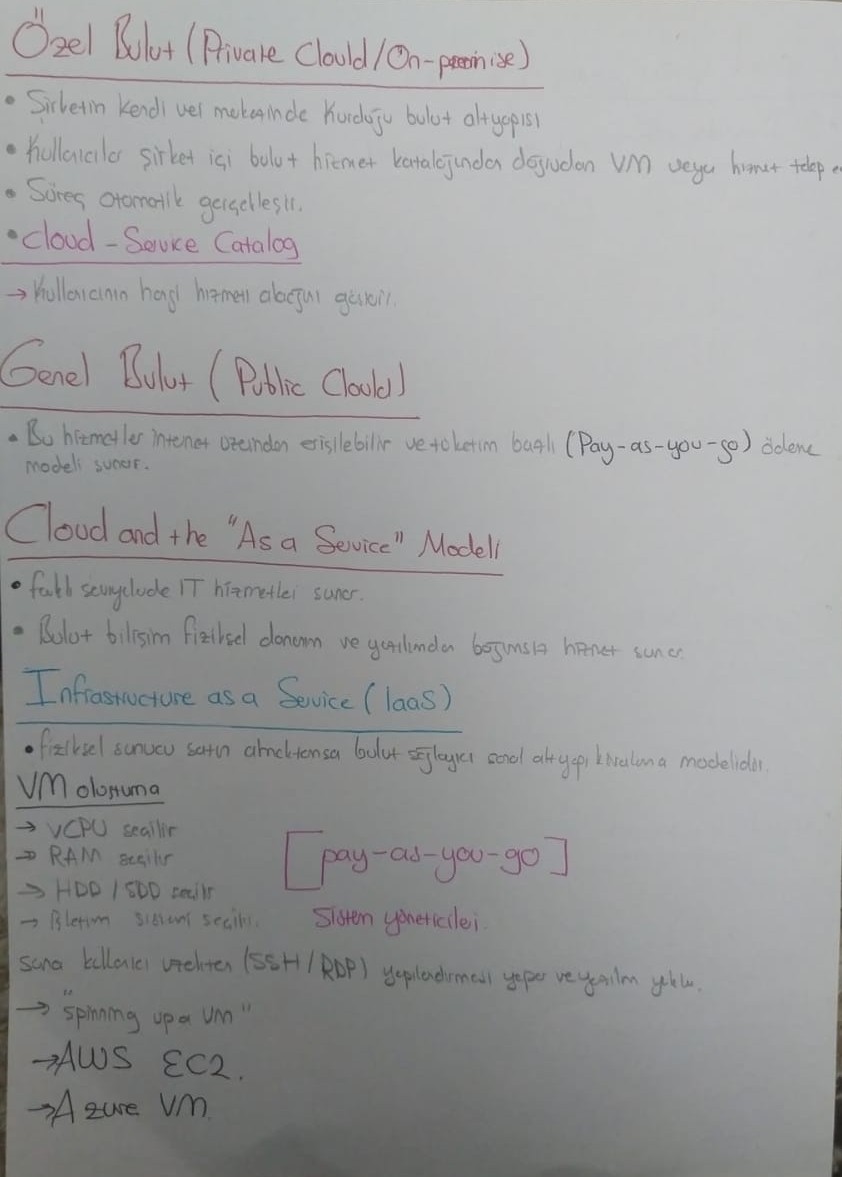 Özel Bulut (Private Clould/On-premise)
• Şirketin kendi veri merkezinde kurduğu bulut altyapısı
• Kullanıcılar şirket içi bulut hizmet kataloğundan doğrudan VM veya hizmet talep e
• Süreç otomatik gerçekleşir.
• Cloud - Service Catalog
→ Kullanıcının hangi hizmeti alacağını gösterir.
Genel Bulut (Public Clould)
• Bu hizmetler internet üzerinden erişilebilir ve tüketim bağlı (Pay-as-you-go) ödeme
modeli sunar.
Cloud and the "As a Service" Modeli
• farklı seviyelerde IT hizmetleri sunar.
• Bulut bilişim fiziksel donanım ve yazılımdan bağımsız hizmet sunar.
Infrastructure as a Service (IaaS)
• fiziksel sunucu satın almaktansa bulut sağlayıcı sanal altyapı kiralama modelidir.
VM oluşturma
→ VCPU seçilir
→ RAM seçilir
[pay-as-you-go]
→ HDD / SDD seçilir
→ İşletim sistemi seçilir.
Sistem yöneticileri.
Sonra kullanıcı uzaktan (SSH / RDP) yapılandırmesı yapar ve yazılım yükler.
→ "spinning up a VM"
→AWS EC2.
→Azure VM